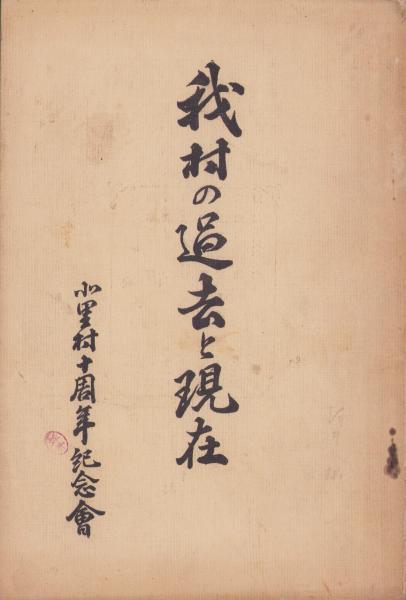 我村の過去と現在
北里村十周年記念會